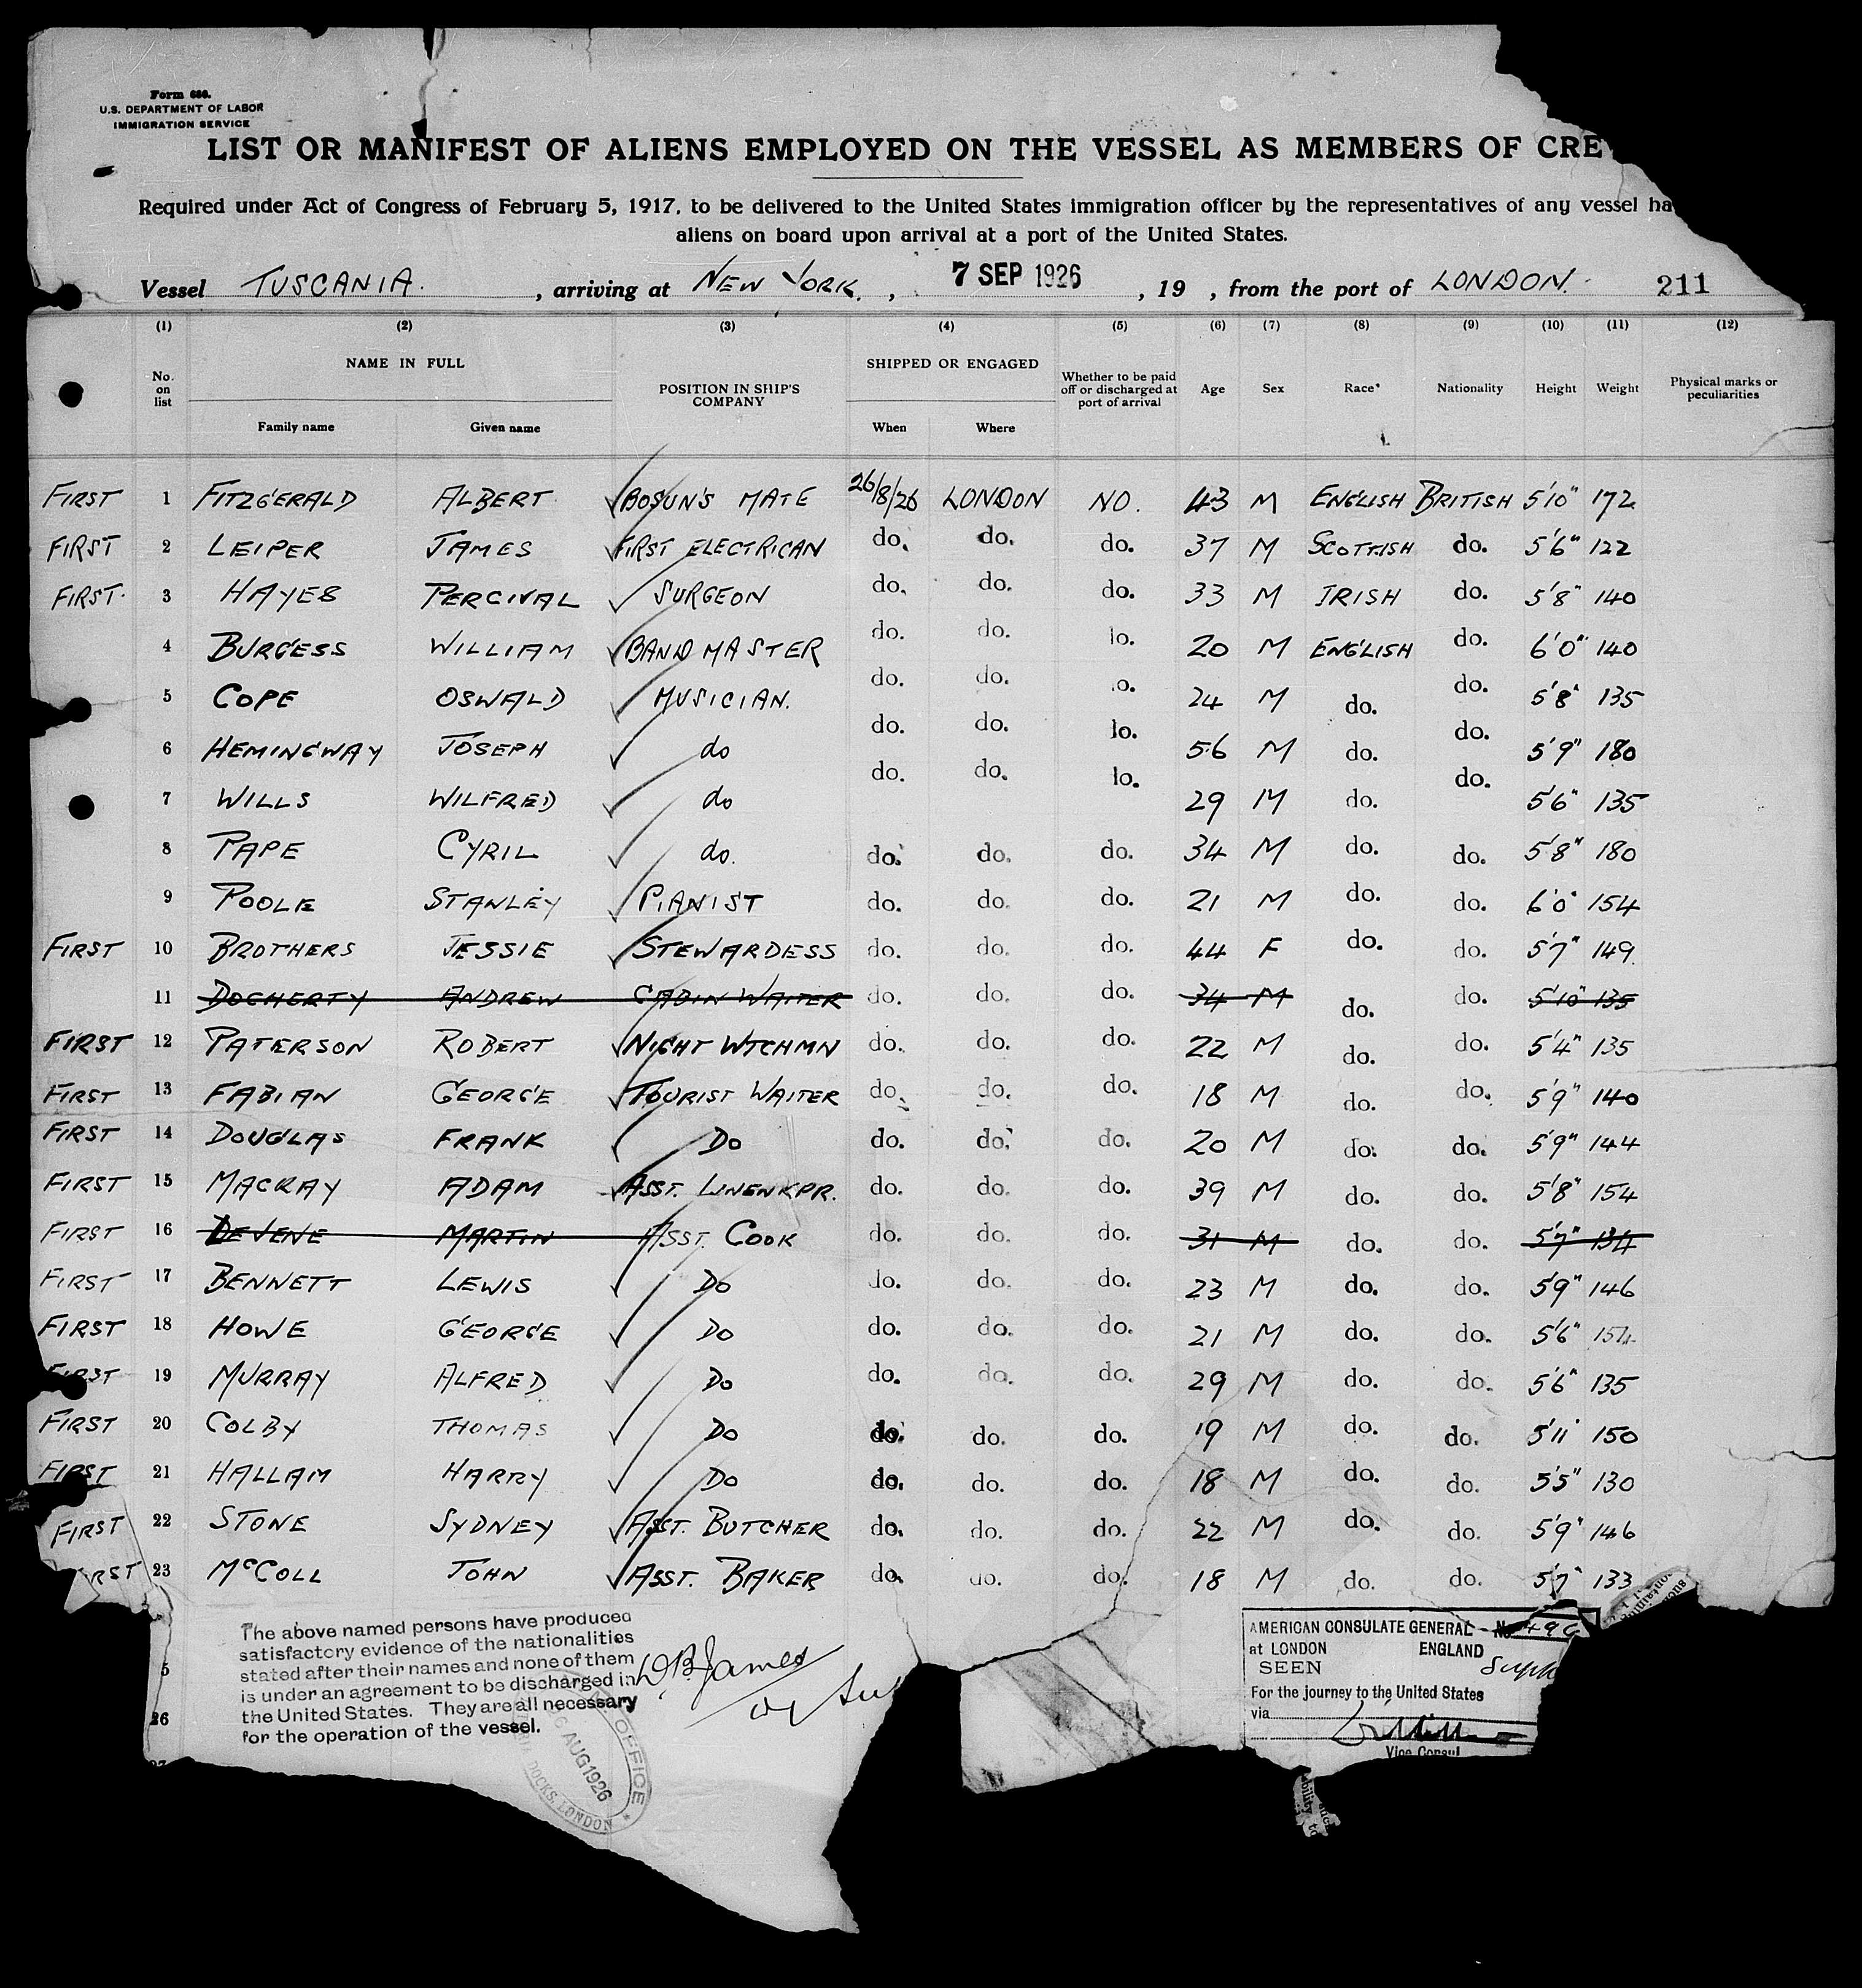 Form 680.
U.S. DEPARTMENT OF LABOR
IMMIGRATION SERVICE
LIST OR MANIFEST OF ALIENS EMPLOYED ON THE VESSEL AS MEMBERS OF CRE
Required under Act of Congress of February 5, 1917, to be delivered to the United States immigration officer by the representatives of any vessel ha
aliens on board upon arrival at a port of the United States.
Vessel TUSCANIA. , arriving at NEW YORK. , 7 SEP 1926 , 19 , from the port of LONDON. 211
(1) (2) (3) (4) (5) (6) (7) (8) (9) (10) (11) (12)
No. on list NAME IN FULL Family name Given name POSITION IN SHIP'S COMPANY SHIPPED OR ENGAGED When Where Whether to be paid off or discharged at port of arrival Age Sex Race* Nationality Height Weight Physical marks or peculiarities
FIRST 1 FITZGERALD ALBERT BOSUN'S MATE 26/8/26 LONDON NO. 43 M ENGLISH BRITISH 5'10" 172
FIRST 2 LEIPER JAMES FIRST ELECTRICAN do. do. do. 37 M SCOTTISH do. 5'6" 122
FIRST. 3 HAYES PERCIVAL SURGEON do. do. do. 33 M IRISH do. 5'8" 140
4 BURGESS WILLIAM BAND MASTER do. do. lo. 20 M ENGLISH do. 6'0" 140
5 COPE OSWALD MUSICIAN. do. do. .o. 24 M do. do. 5'8" 135
6 HEMINGWAY JOSEPH do do. do. lo. 56 M do. do. 5'9" 180
7 WILLS WILFRED do do. do. lo. 29 M do. do. 5'6" 135
8 PAPE CYRIL do. do. do. do. 34 M do. do. 5'8" 180
9 POOLE STANLEY PIANIST do. do. do. 21 M do. do. 6'0" 154
FIRST 10 BROTHERS JESSIE STEWARDESS do. do. do. 44 F do. do. 5'7" 149.
11 DOCHERTY ANDREW CABIN WAITER do. do. do. 34 M do. do. 5'10" 135
FIRST 12 PATERSON ROBERT NIGHT WTCHMN do. do. do. 22 M do. do. 5'4" 135
FIRST 13 FABIAN GEORGE TOURIST WAITER do. do. do. 18 M do. do. 5'9" 140
FIRST 14 DOUGLAS FRANK DO do. do. do. 20 M do. do. 5'9" 144
FIRST 15 MACRAY ADAM ASST. LINENKPR. do. do. do. 39 M do. do. 5'8" 154
FIRST 16 DEVENE MARTIN ASST. COOK do. do. do. 31 M do. do. 5'7" 134
FIRST 17 BENNETT LEWIS DO do. do. do. 23 M do. do. 5'9" 146
FIRST 18 HOWE GEORGE DO do. do. do. 21 M do. do. 5'6" 154
FIRST 19 MURRAY ALFRED DO do. do. do. 29 M do. do. 5'6" 135
FIRST 20 COLBY THOMAS DO do. do. do. 19 M do. do. 5'11" 150
FIRST 21 HALLAM HARRY DO do. do. do. 18 M do. do. 5'5" 130
FIRST 22 STONE SYDNEY ASST. BUTCHER do. do. do. 22 M do. do. 5'9" 146
RST 23 McCOLL JOHN ASST. BAKER do. do. do. 18 M do. do. 5'7" 133
The above named persons have produced
satisfactory evidence of the nationalities
stated after their names and none of them
is under an agreement to be discharged in
the United States. They are all necessary
for the operation of the vessel.
5
26
27
W.B. James
OFFICE
26 AUG 1926
DOCKS, LONDON
AMERICAN CONSULATE GENERAL No.
at LONDON ENGLAND
SEEN
For the journey to the United States
via
Vice Consul